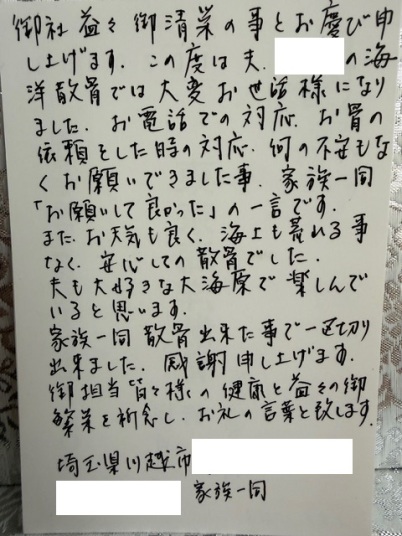 御社 益々 御清栄の事とお慶び申
し上げます. この度は夫. の海
洋散骨では大変お世話様になり
ました. お電話での対応. お骨の
依頼をした時の対応. 何の不安もな
くお願いできました事. 家族一同
「お願いして良かった」の一言です.
また. お天気も良く. 海上も荒れる事
なく. 安心しての散骨でした.
夫も大好きな大海原で楽しんで
いると思います.
家族一同 散骨出来た事で一区切り
出来ました. 感謝申し上げます.
御担当皆々様の健康と益々の御
繁栄を祈念し. お礼の言葉と致します.
埼玉県川越市
家族一同